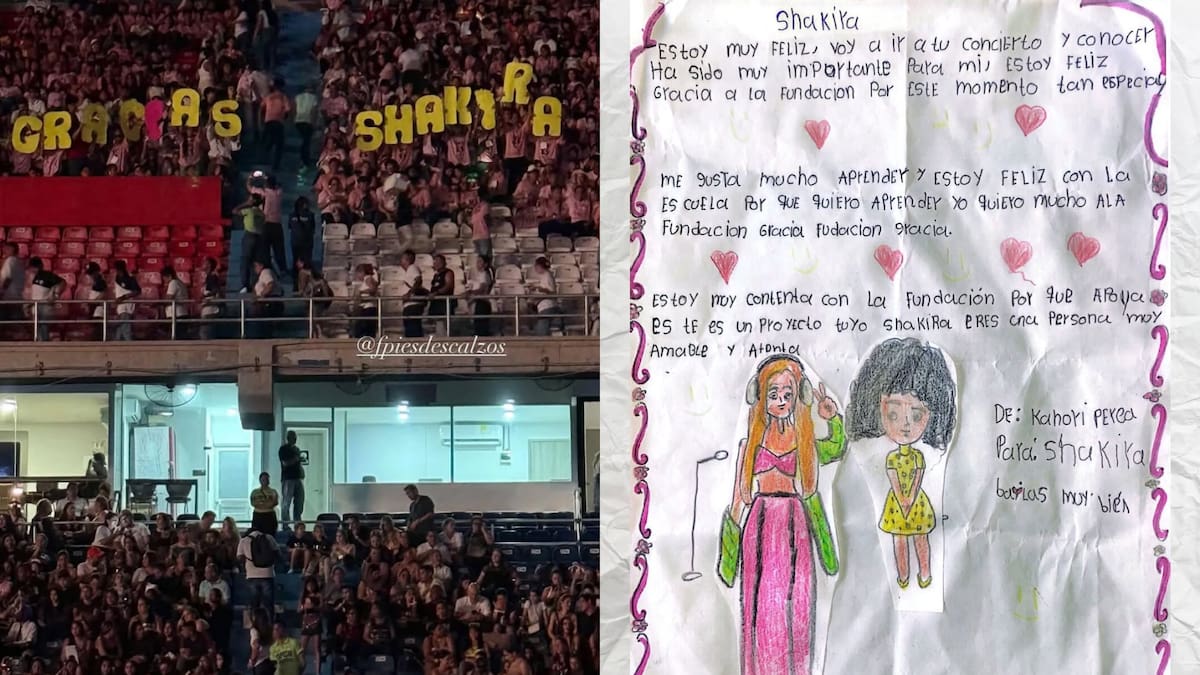 GRACIAS SHAKIRA
@fpiesdescalzos
Shakira
ESTOY MUY FELIZ, VOY A IR A TU CONCIERTO Y CONOCER
Ha sido muy importante Para mi, ESTOY FELIZ
Gracia a la Fundacion Por ESTE momento tan especial
ME gusta mucho APRENDER Y ESTOY FELIZ con LA
Escuela Por que quiero APRENDER Yo quiero mucho ALA
Fundacion Gracia Fudacion gracia.
Estoy moy contenta con La Fundación Por que Apoya
es te es un Proyecto tuyo Shakira eres una Persona moy
Amable y Atenta
De: Kahori Perea
Pará: Shakira
bailas muy bién